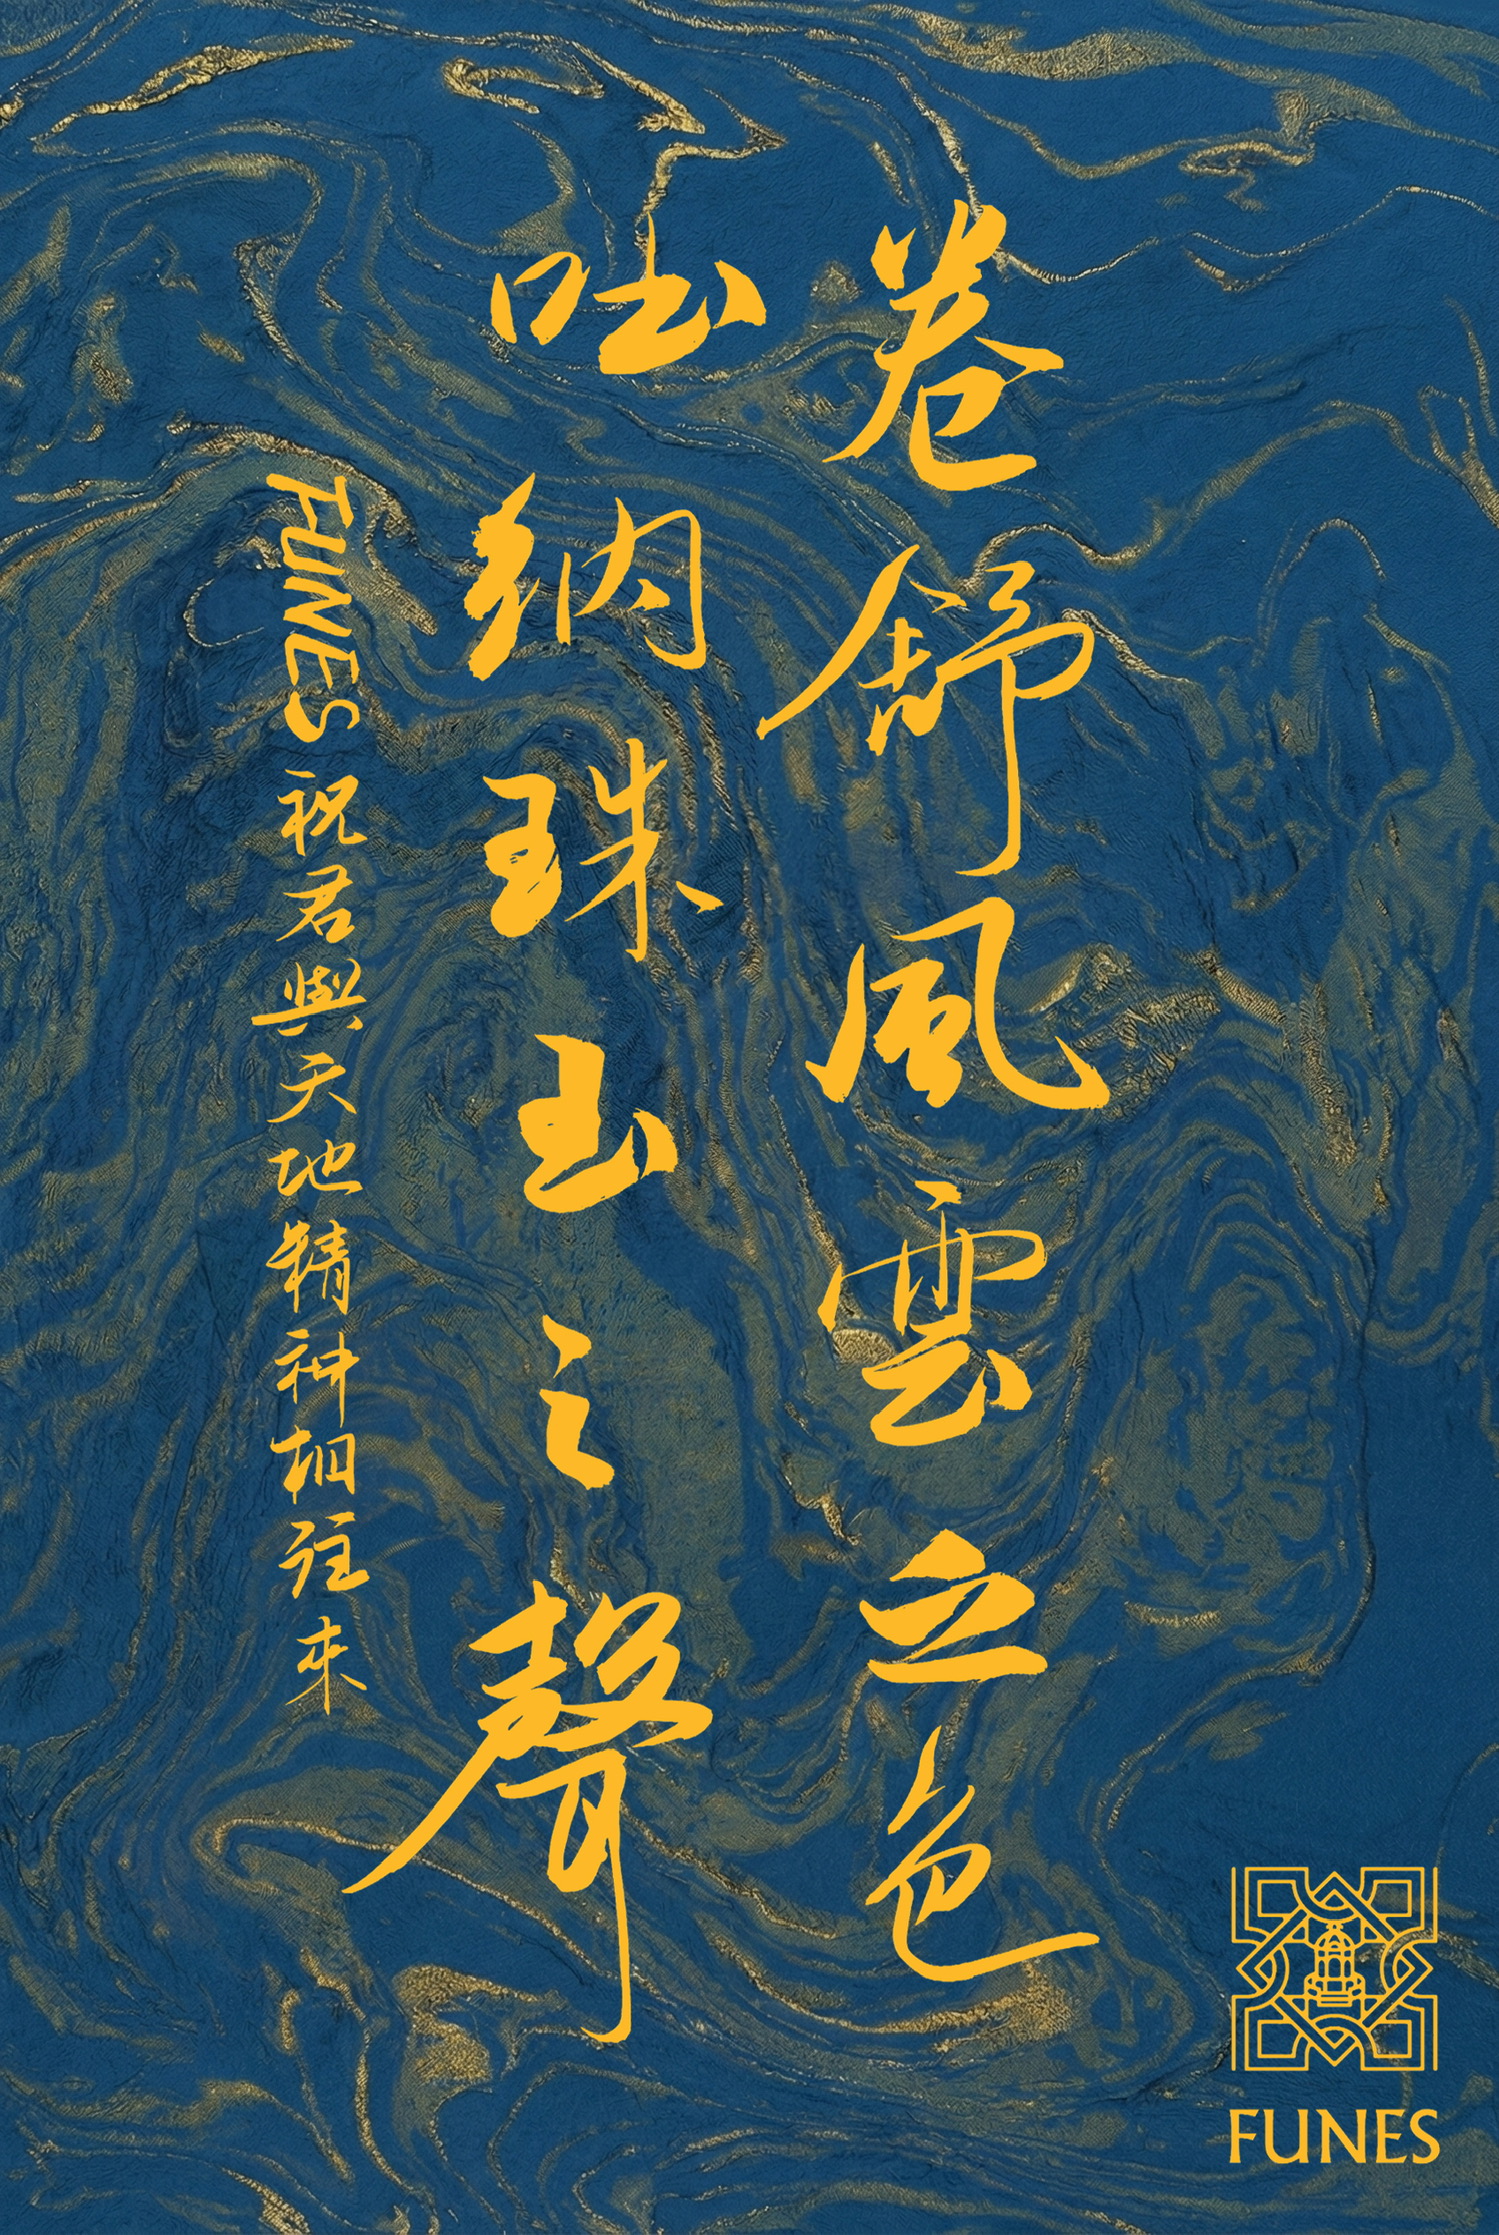 卷舒風雲之色
吐納珠玉之聲
FUNES 祝君與天地精神相往來
FUNES